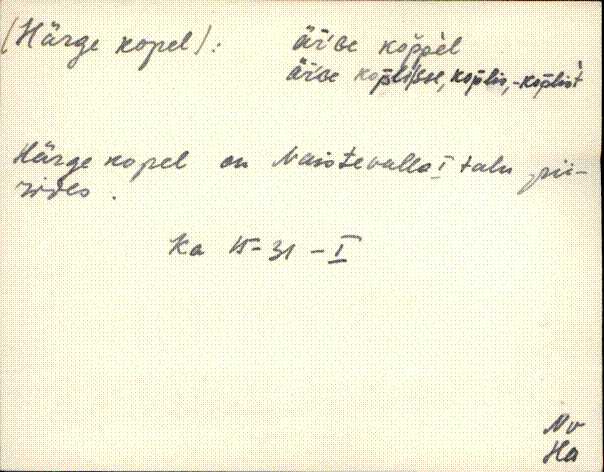 (Härge kopel): är'ǵe kop̄pel
är'ǵe kop̄lisse, kop̄lis, -kop̄list
Härge kopel on Naistevalla I talu pii-
rides.
Ka 15-31-I
Nv
Ha